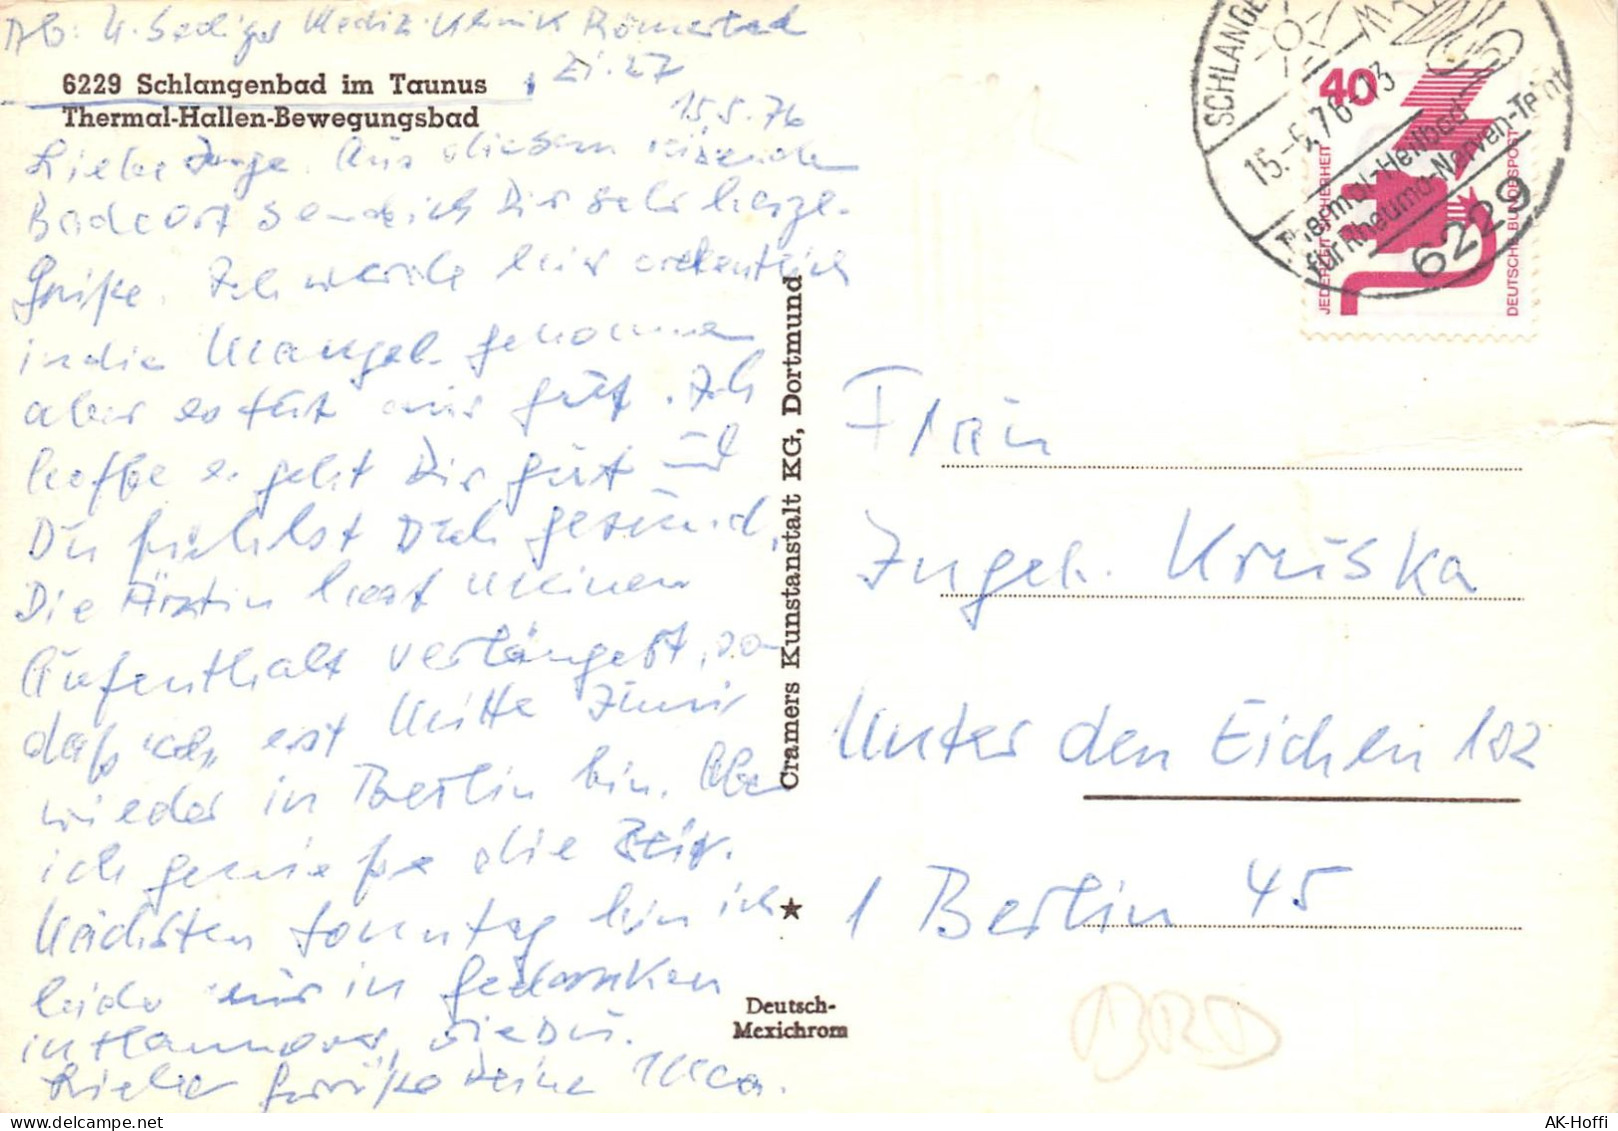 Ab: U. Sediger Mediz. Klinik Römerbad
Zi. 27
6229 Schlangenbad im Taunus
Thermal-Hallen-Bewegungsbad
15.5.76
Liebe Inge. Aus diesem reizenden
Badeort sende ich Dir sehr herzl.
Grüße. Ich werde hier ordentlich
in die Mangel genommen
aber es tut mir gut. Ich
hoffe es geht Dir gut und
Du fühlst Dich gesund.
Die Ärztin hat meinen
Aufenthalt verlängert, so
daß ich erst Mitte Juni
wieder in Berlin bin. Aber
ich genieße die Zeit.
Nächsten Sonntag bin ich
leider nur in Gedanken
in Hannover, wie Du.
Liebe Grüße Deine Ulla.
Cramers Kunstanstalt KG, Dortmund
★
Deutsch-
Mexichrom
SCHLANGE
15.-5.76-13
Thermal-Heilbad
für Rheuma-Nerven-Teint
6229
40
JEDERZEIT SICHERHEIT
DEUTSCHE BUNDESPOST
Frau
Ingeb. Kruska
Unter den Eichen 102
1 Berlin 45
BRD
AK-Hoffi